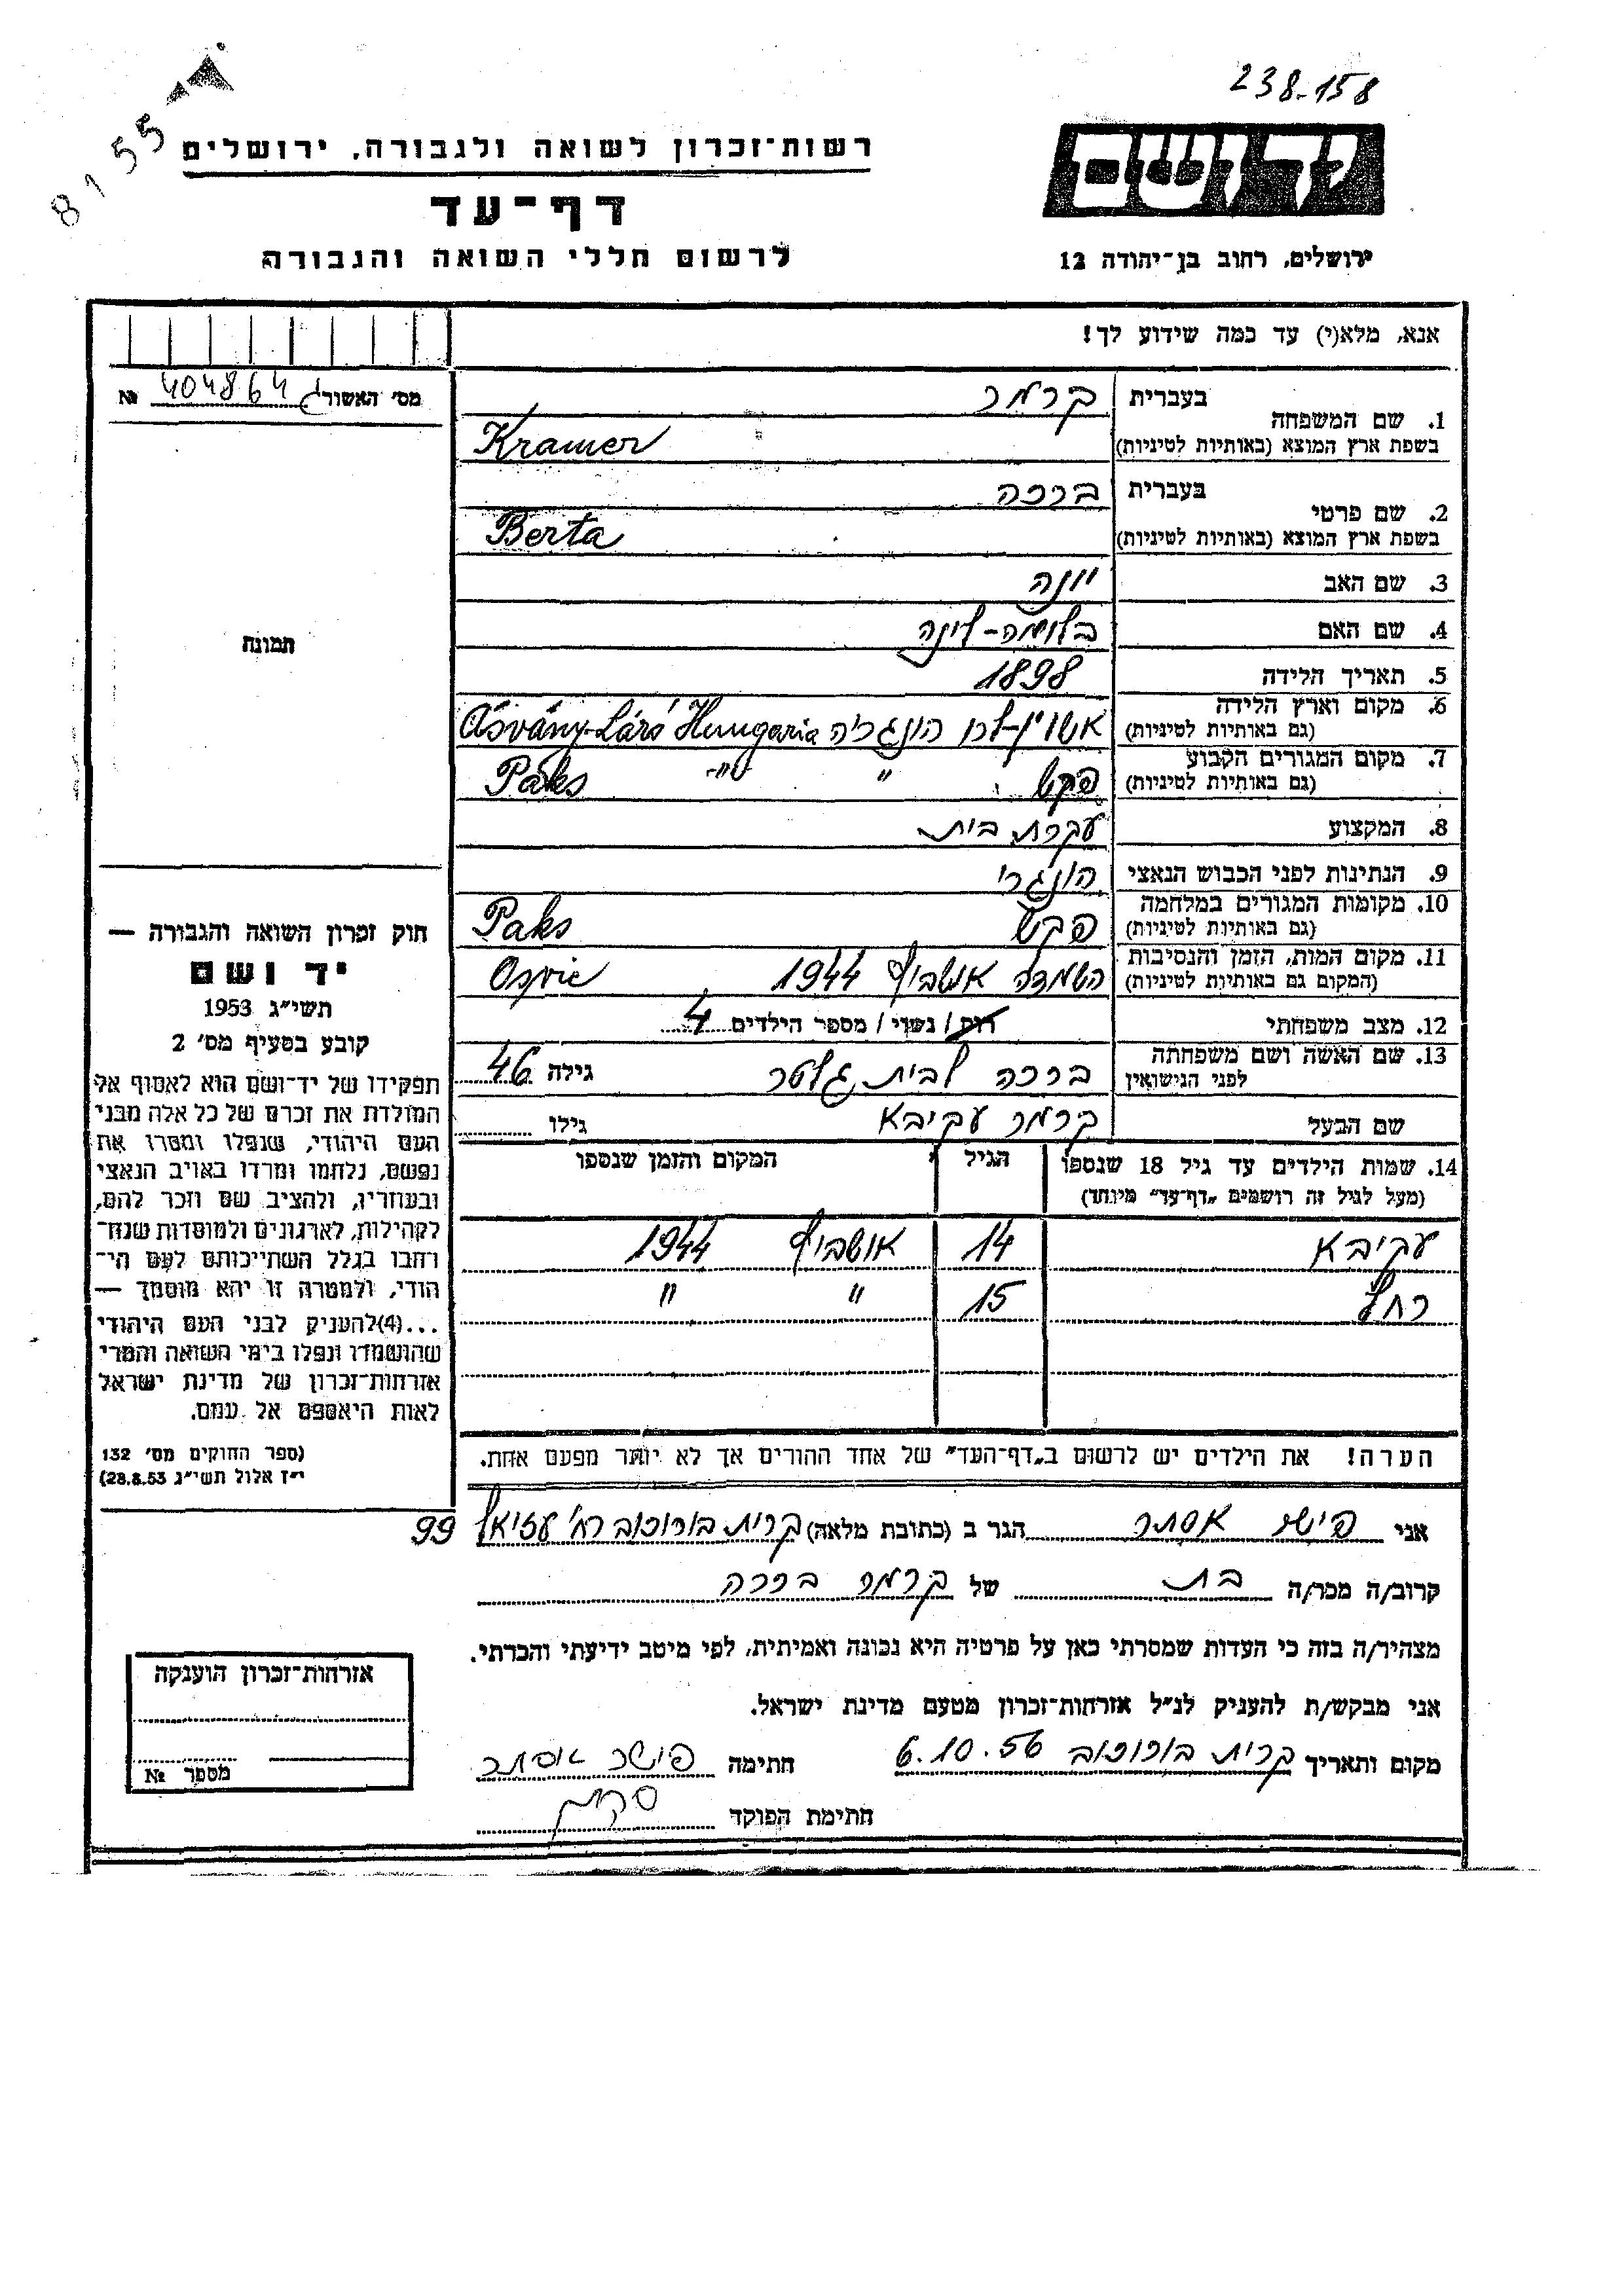 238-158
8155
רשות־זכרון לשואה ולגבורה, ירושלים
דף־עד
לרשום חללי השואה והגבורה
ידושם
ירושלים, רחוב בן־יהודה 12
אנא, מלא(י) עד כמה שידוע לך!
מס' האשור 404864 №
תמונה
1. שם המשפחה בעברית קרמר
בשפת ארץ המוצא (באותיות לטיניות) Kramer
2. שם פרטי בעברית ברכה
בשפת ארץ המוצא (באותיות לטיניות) Berta
3. שם האב יונה
4. שם האם בלומה-לינה
5. תאריך הלידה 1898
6. מקום וארץ הלידה
(גם באותיות לטיניות) הונגריה Ásvány-Láró Hungaria
7. מקום המגורים הקבוע
(גם באותיות לטיניות) פקש " -"- Paks
8. המקצוע עקרת בית
9. הנתינות לפני הכבוש הנאצי הונגרי
10. מקומות המגורים במלחמה
(גם באותיות לטיניות) פקש Paks
11. מקום המות, הזמן והנסיבות
(המקום גם באותיות לטיניות) השמדה אושביץ 1944
12. מצב משפחתי רוק / נשוי / מספר הילדים 4
13. שם האשה ושם משפחתה
לפני הנישואין ברכה לבית גלטר גילה 46
שם הבעל קרמר עקיבא גילו
14. שמות הילדים עד גיל 18 שנספו הגיל המקום והזמן שנספו
(מעל לגיל זה רושמים „דף־עד" מיוחד)
עקיבא 14 אושביץ 1944
רחל 15 " "
הערה! את הילדים יש לרשום ב„דף־העד" של אחד ההורים אך לא יותר מפעם אחת.
חוק זכרון השואה והגבורה —
יד ושם
תשי״ג 1953
קובע בסעיף מס' 2
תפקידו של יד־ושם הוא לאסוף אל
המולדת את זכרם של כל אלה מבני
העם היהודי, שנפלו ומסרו את
נפשם, נלחמו ומרדו באויב הנאצי
ובעוזריו, ולהציב שם וזכר להם,
לקהילות, לארגונים ולמוסדות שנח־
רחבו בגלל השתייכותם לעם הי־
הודי, ולמטרה זו יהא מוסמך —
...(4)להעניק לבני העם היהודי
שהושמדו ונפלו בימי השואה והמרי
אזרחות־זכרון של מדינת ישראל
לאות היאספם אל עמם.
(ספר החוקים מס' 132
י״ז אלול תשי״ג 28.8.53)
אני פישר אסתר הגר ב (כתובת מלאה) קרית בורוכוב רח' עזיאל 99
קרוב/ה מכר/ה בת של קרמר ברכה
מצהיר/ה בזה כי העדות שמסרתי כאן על פרטיה היא נכונה ואמיתית, לפי מיטב ידיעתי והכרתי.
אני מבקש/ת להעניק לנ״ל אזרחות־זכרון מטעם מדינת ישראל.
מקום ותאריך קרית בורוכוב 6.10.56 חתימה פישר אסתר
חתימת הפוקד
אזרחות־זכרון הוענקה
מספר №